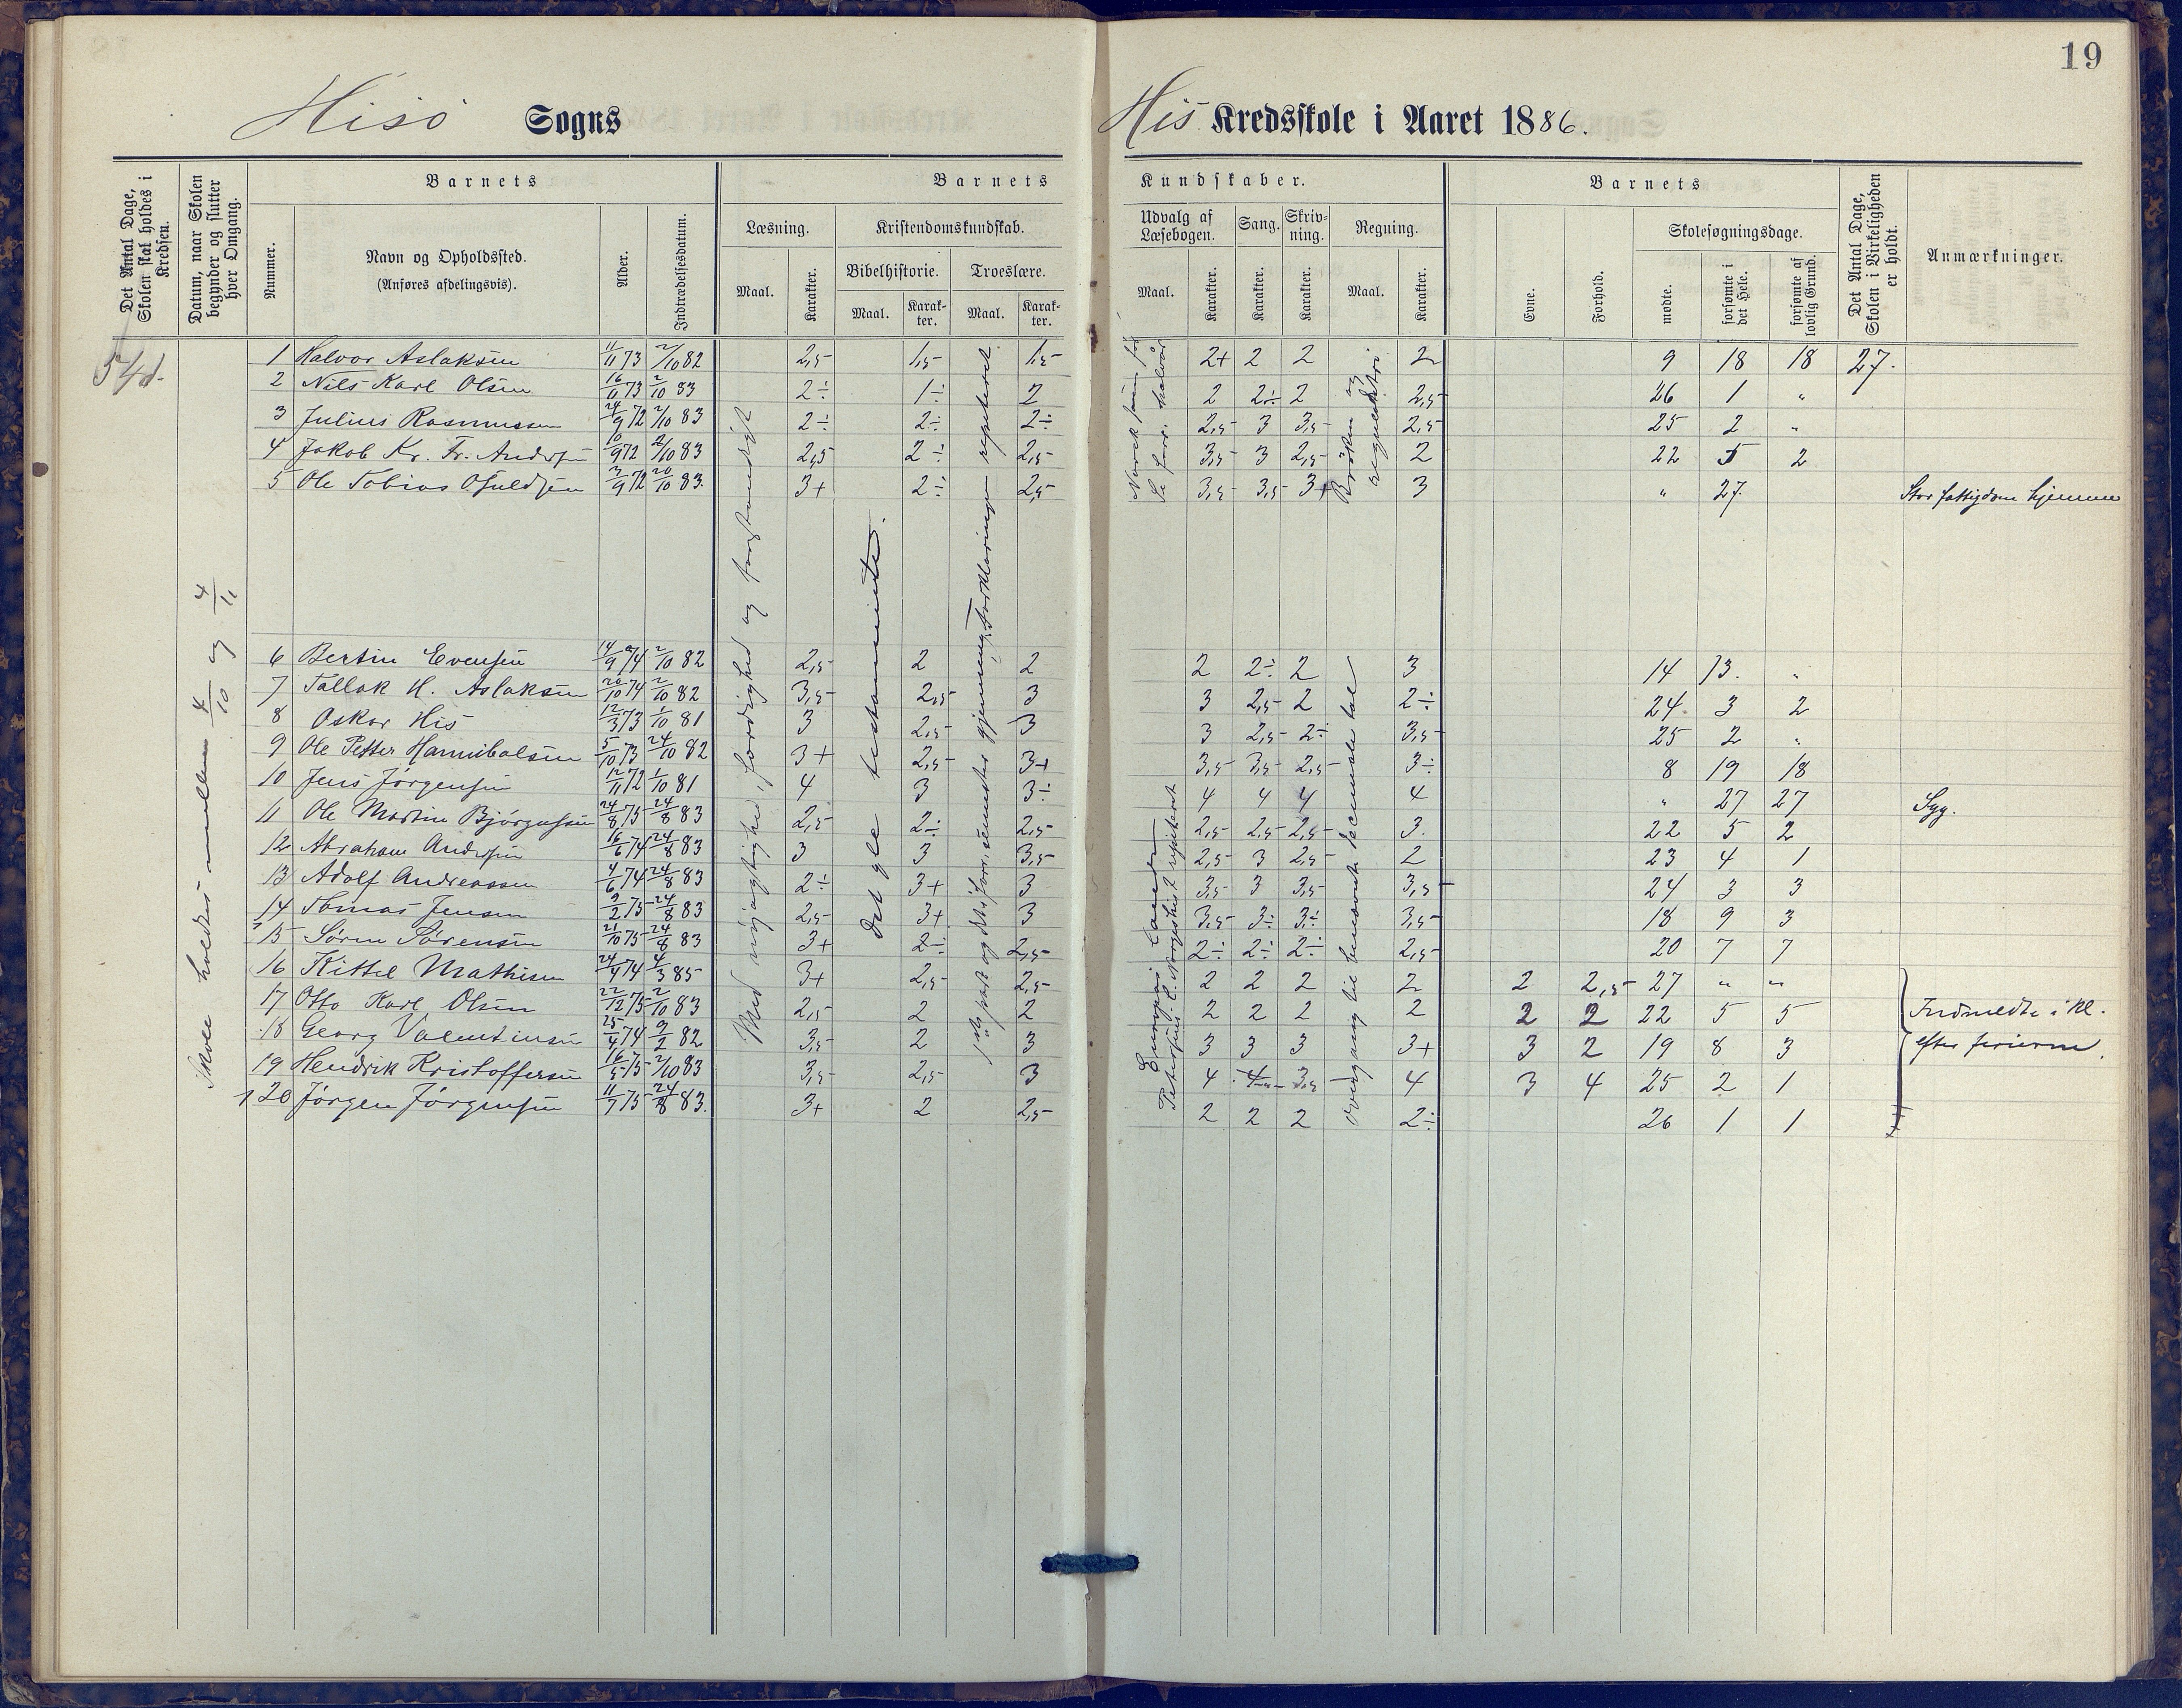 19
Hisö Sogns His Kredsskole i Aaret 1886.
Det Antal Dage, Skolen skal holdes i Kredsen.
Datum, naar Skolen begynder og slutter hver Omgang.
Barnets
Nummer.
Navn og Opholdssted.
(Anføres afdelingsvis).
Alder.
Indtrædelsesdatum.
Barnets Kundskaber.
Læsning.
Maal.
Karakter.
Kristendomskundskab.
Bibelhistorie.
Maal.
Karakter.
Troeslære.
Maal.
Karakter.
Udvalg af Læsebogen.
Maal.
Karakter.
Sang.
Karakter.
Skrivning.
Karakter.
Regning.
Maal.
Karakter.
Barnets
Evne.
Forhold.
Skolesøgningsdage.
mødte.
forsømte i det Hele.
forsømte af lovlig Grund.
Det Antal Dage, Skolen i Virkeligheden er holdt.
Anmærkninger.
54d.
Skole holdes mellem 4/10 og 4/11
Med nöjagtighed, færdighed og
Det gle testamente.
repeteret
Europas Lande
Bröken og
overgang til benævnte decimale tal
1 Halvor Aslaksen 4/11 73 2/10 82 2,5 1,5 1,5 2+ 2 2 2 9 18 18 27.
2 Nils Karl Olsen 16/11 73 2/10 83 2÷ 1÷ 2 2 2÷ 2 2,5 26 1 "
3 Julius Rasmussen 24/9 72 2/10 83 2÷ 2÷ 2÷ 2,5 3 3,5 2,5 25 2 "
4 Jakob Kr. Fr. Andersen 10/9 72 2/10 83 2,5 2÷ 2,5 3,5 3 2,5 2 22 5 2
5 Ole Tobias Osuldsen 2/9 72 20/10 83. 3+ 2÷ 2,5 3,5 3,5 3+ 3 " 27. Stor fattigdom hjemme
6 Bertin Evensen 14/9 74 2/10 82 2,5 2 2 2 2÷ 2 3 14 13. "
7 Tallak H. Aslaksen 20/10 74 2/10 82 3,5 2,5 3 3 2,5 2 2÷ 24 3 2
8 Oskar His 12/3 73 1/10 81 3 2,5 3 3 2,5 2÷ 3,5 25 2 "
9 Ole Petter Hannibalsen 5/10 73 24/10 82 3+ 2,5 3+ 3,5 3,5 2,5 3÷ 8 19 18
10 Jens Jörgensen 12/11 72 1/10 81 4 3 3÷ 4 4 4 4 " 27 27 Syg.
11 Ole Martin Björgufsen 24/8 75 24/8 83 2,5 2÷ 2,5 2,5 2,5 2,5 3. 22 5 2
12 Abraham Andersen 16/6 74 24/8 83 3 3 3,5 2,5 3 2,5 2 23 4 1
13 Adolf Andreassen 4/6 74 24/8 83 2÷ 3+ 3 3,5 3 3,5 3,5 24 3 3
14 Tomas Jensen 9/2 75 24/8 83 2,5 3+ 3 3,5 3÷ 3÷ 3,5 18 9 3
15 Sören Sörensen 21/10 75 24/8 83 3+ 2÷ 2,5 2÷ 2÷ 2÷ 2,5 20 7 7
16 Kittel Mathisen 24/4 74 4/3 85 3+ 2,5 2,5 2 2 2 2 2 2,5 27 " "
17 Otto Karl Olsen 22/12 75 2/10 83 2,5 2 2 2 2 2 2 2 2 22 5 5 Indmeldte i kl.
18 Georg Valentinsen 25/4 74 9/2 82 3,5 2 3 3 3 3 3+ 3 2 19 8 3 efter ferierne.
19 Hendrik Kristoffersen 16/5 75 2/10 83 3,5 2,5 3 4 4 3,5 4 3 4 25 2 1
20 Jörgen Jörgensen 11/7 75 24/8 83. 3+ 2 2,5 2 2 2 2÷ 26 1 1